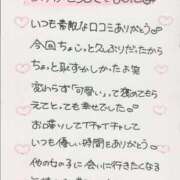 いつも素敵な口コミありがとう。
今回ちょこっと久ぶりだったから
ちょっと恥ずかしかったよ笑
変わらず「可愛い」って褒めてもら
えてとっても幸せでした♡
お喋りしてイチャイチャして
いつも優しい時間をありがとう
他の女の子に会いに行きたくなる